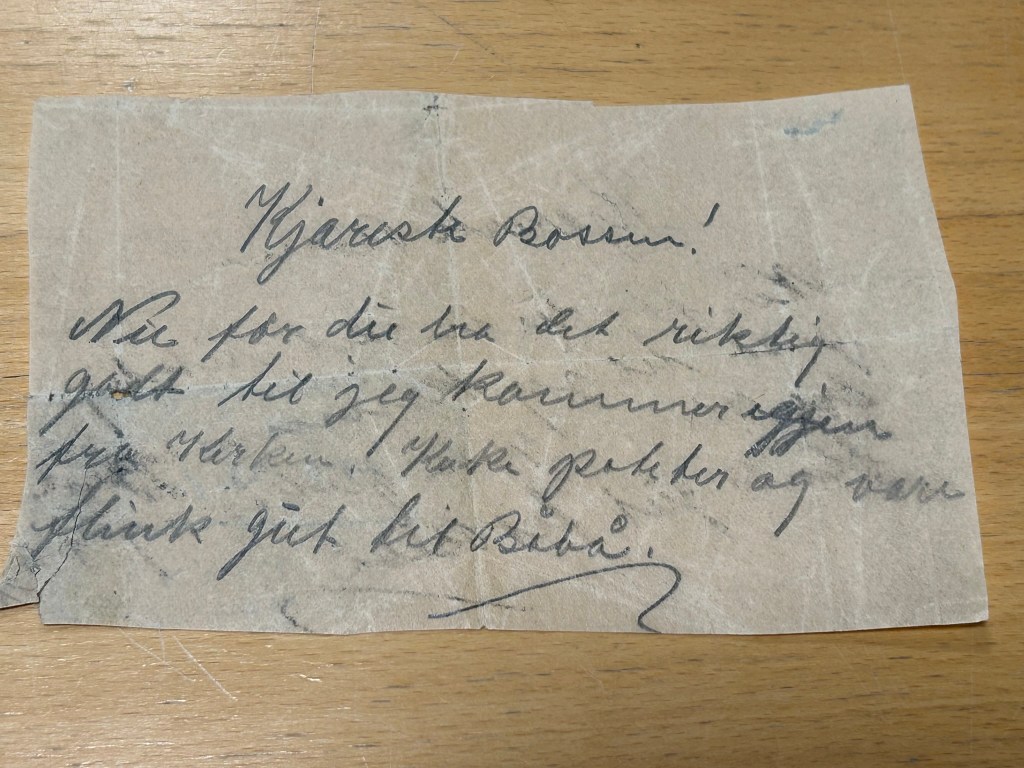 Kjæreste Bossen!
Nu får du ha det riktig
godt til jeg kommer igjen
fra Kirken. Koke poteter og være
flink gut hit Båbå.